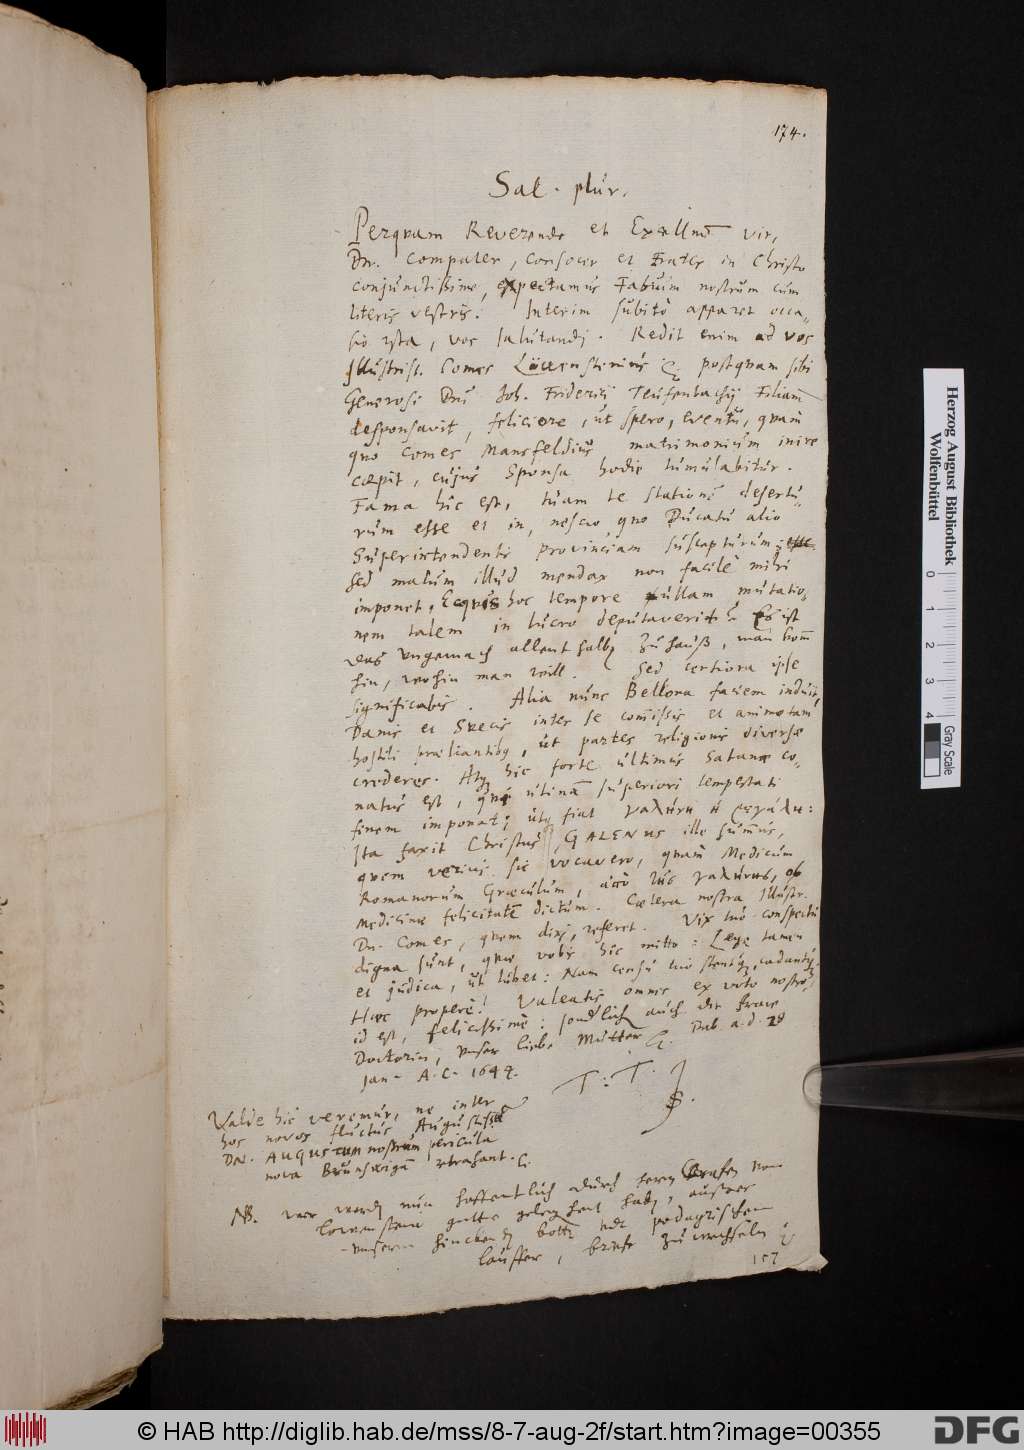 174.
Sal. plur.
Perquam Reverende et Excellme vir,
Dn. Compater, Consocer et Frater in Christo
conjunctissime, expectamus Fabrum nostrum cum
literis vestris: Interim subitò apparet occa-
sio ista, vos salutandi. Redit enim ad vos
Illustriss. Comes Löwensteinius &c postquam sibi
Generosi Dni Joh. Friderici Teufenbachij Filiam
desponsavit, feliciore, ut spero, eventu, quam
quo Comes Mansfeldius matrimonium inire
cœpit, cujus Sponsa hodie tumulabitur.
Fama hîc est, tuam te stationem desertu-
rum esse et in, nescio quo Ducatu alio
Superintendentis provinciam suscepturum:
sed malum illud mendax non facilè mihi
imponet. Ecquis hoc tempore ullam mutatio-
nem talem in lucro deputaverit? Es ist
das Ungemach allenthalben zu hauß, man komm
hin, wohin man will. Sed certiora ipse
significabis. Alia nunc Bellona faciem induit,
Danis et Suecis inter se commissis et animo tam
hostili præliantibus, ut partes religionis diversæ
crederes. Atque hic forte ultimus Satanæ co-
natus est, qui utinam superiori tempestati
finem imponat; utque fiat γαλήνη ἡ μεγάλη:
Ita faxit Christus, GALENUS ille summus,
quem verius sic vocavero, quàm Medicum
Romanorum Græculum, ἀπὸ τῆς γαλήνης, ob
Medicinæ felicitatem dictum. Cætera nostra Illustr.
Dn. Comes, quem dixi, referet. Vix tuo conspectu
digna sunt, quæ vobis hîc mitto: Lege tamen
et judica, ut lubet: Nam censu tuo stentque, cadantque.
Hæc properè! Valeatis omnes ex voto nostro,
id est, felicissimè: sonderlich auch die Fraw
Doctorin, unser liebe Mutter &c. Dab. a. d. 28
Jan. A. C. 1644.
T. T. J
S.
Valde hîc veremur, ne inter
hos novos fluctus Augustissimum
Dn. AUGUSTUM nostrum pericula
nova Brunswigam retrahant. &c.
NB. wir werden nun hoffentlich durch herrn Grafen von
Lowenstein gutte gelegenheit haben, ausser
unserm hinckenden botten und podagrischen
lauffer, briefe zu wechseln &c
157
Herzog August Bibliothek
Wolfenbüttel
0 1 2 3 4
Gray Scale
© HAB http://diglib.hab.de/mss/8-7-aug-2f/start.htm?image=00355
DFG